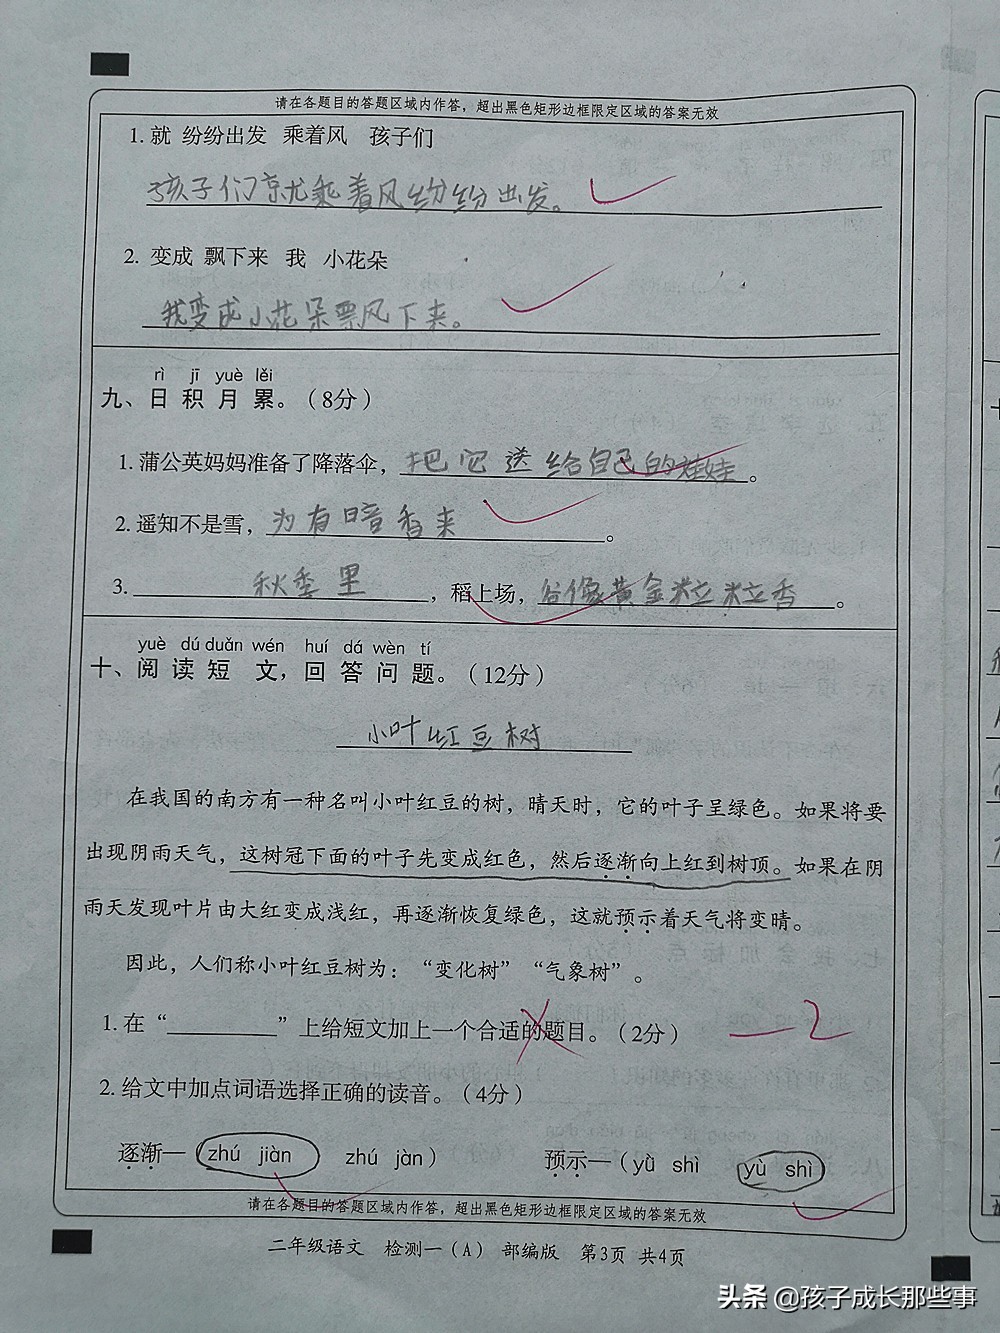 请在各题目的答题区域内作答，超出黑色矩形边框限定区域的答案无效
1. 就 纷纷出发 乘着风 孩子们
孩子们就乘着风纷纷出发。
2. 变成 飘下来 我 小花朵
我变成小花朵票风下来。
rì jī yuè lěi
九、日积月累。（8分）
1. 蒲公英妈妈准备了降落伞，把它送给自己的娃娃。
2. 遥知不是雪，为有暗香来。
3. 秋季里，稻上场，谷像黄金粒粒香。
yuè dú duǎn wén huí dá wèn tí
十、阅读短文，回答问题。（12分）
小叶红豆树
在我国的南方有一种名叫小叶红豆的树，晴天时，它的叶子呈绿色。如果将要
出现阴雨天气，这树冠下面的叶子先变成红色，然后逐渐向上红到树顶。如果在阴
雨天发现叶片由大红变成浅红，再逐渐恢复绿色，这就预示着天气将变晴。
因此，人们称小叶红豆树为：“变化树”“气象树”。
1. 在“________”上给短文加上一个合适的题目。（2分） —2
2. 给文中加点词语选择正确的读音。（4分）
逐渐—（zhú jiàn zhú jàn） 预示—（yù shì yù shì）
请在各题目的答题区域内作答，超出黑色矩形边框限定区域的答案无效
二年级语文 检测一（A） 部编版 第3页 共4页
头条 @孩子成长那些事